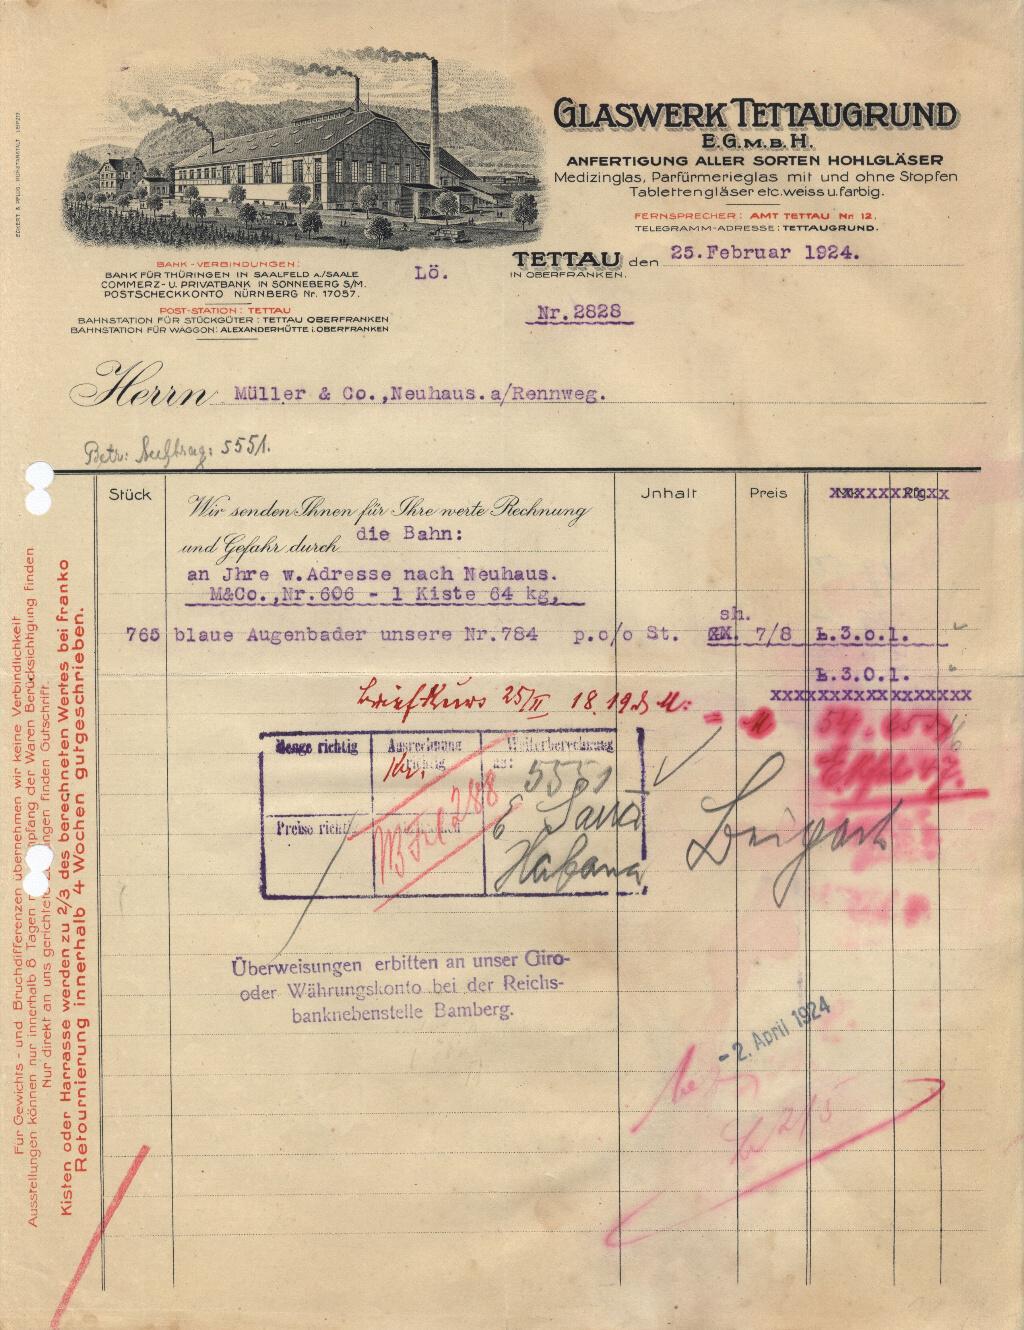 GLASWERK TETTAUGRUND
E.G.M.B.H.
ANFERTIGUNG ALLER SORTEN HOHLGLÄSER
Medizinglas, Parfürmerieglas mit und ohne Stopfen
Tablettengläser etc. weiss u. farbig.
FERNSPRECHER: AMT TETTAU Nr. 12.
TELEGRAMM-ADRESSE: TETTAUGRUND.
BANK-VERBINDUNGEN:
BANK FÜR THÜRINGEN IN SAALFELD A./SAALE
COMMERZ- U. PRIVATBANK IN SONNEBERG S/M.
POSTSCHECKKONTO NÜRNBERG Nr. 17057.
POST-STATION: TETTAU
BAHNSTATION FÜR STÜCKGÜTER: TETTAU OBERFRANKEN
BAHNSTATION FÜR WAGGON: ALEXANDERHÜTTE i. OBERFRANKEN
Lö.
TETTAU den 25. Februar 1924.
IN OBERFRANKEN.
Nr. 2828
Herrn Müller & Co., Neuhaus. a/Rennweg.
Betr: Auftrag: 5551.
Stück Jnhalt Preis
Wir senden Ihnen für Ihre werte Rechnung
und Gefahr durch die Bahn:
an Jhre w. Adresse nach Neuhaus.
M&Co., Nr. 606 - 1 Kiste 64 kg,
sh.
765 blaue Augenbader unsere Nr. 784 p.o/o St. 7/8 L.3.0.1.
L.3.0.1.
xxxxxxxxxxxxxxxxxxx
Briefkurs 25/II 18.19
Menge richtig
Ausrechnung richtig
Weiterberechnung an:
5551
Preise richt
6
Habana
Überweisungen erbitten an unser Giro-
oder Währungskonto bei der Reichs-
banknebenstelle Bamberg.
-2. April 1924
Für Gewichts- und Bruchdifferenzen übernehmen wir keine Verbindlichkeit
Ausstellungen können nur innerhalb 8 Tagen Empfang der Waren Berücksichtigung finden
Nur direkt an uns gerichtete finden Gutschrift.
Kisten oder Harrasse werden zu 2/3 des berechneten Wertes bei franko
Retournierung innerhalb 4 Wochen gutgeschrieben.